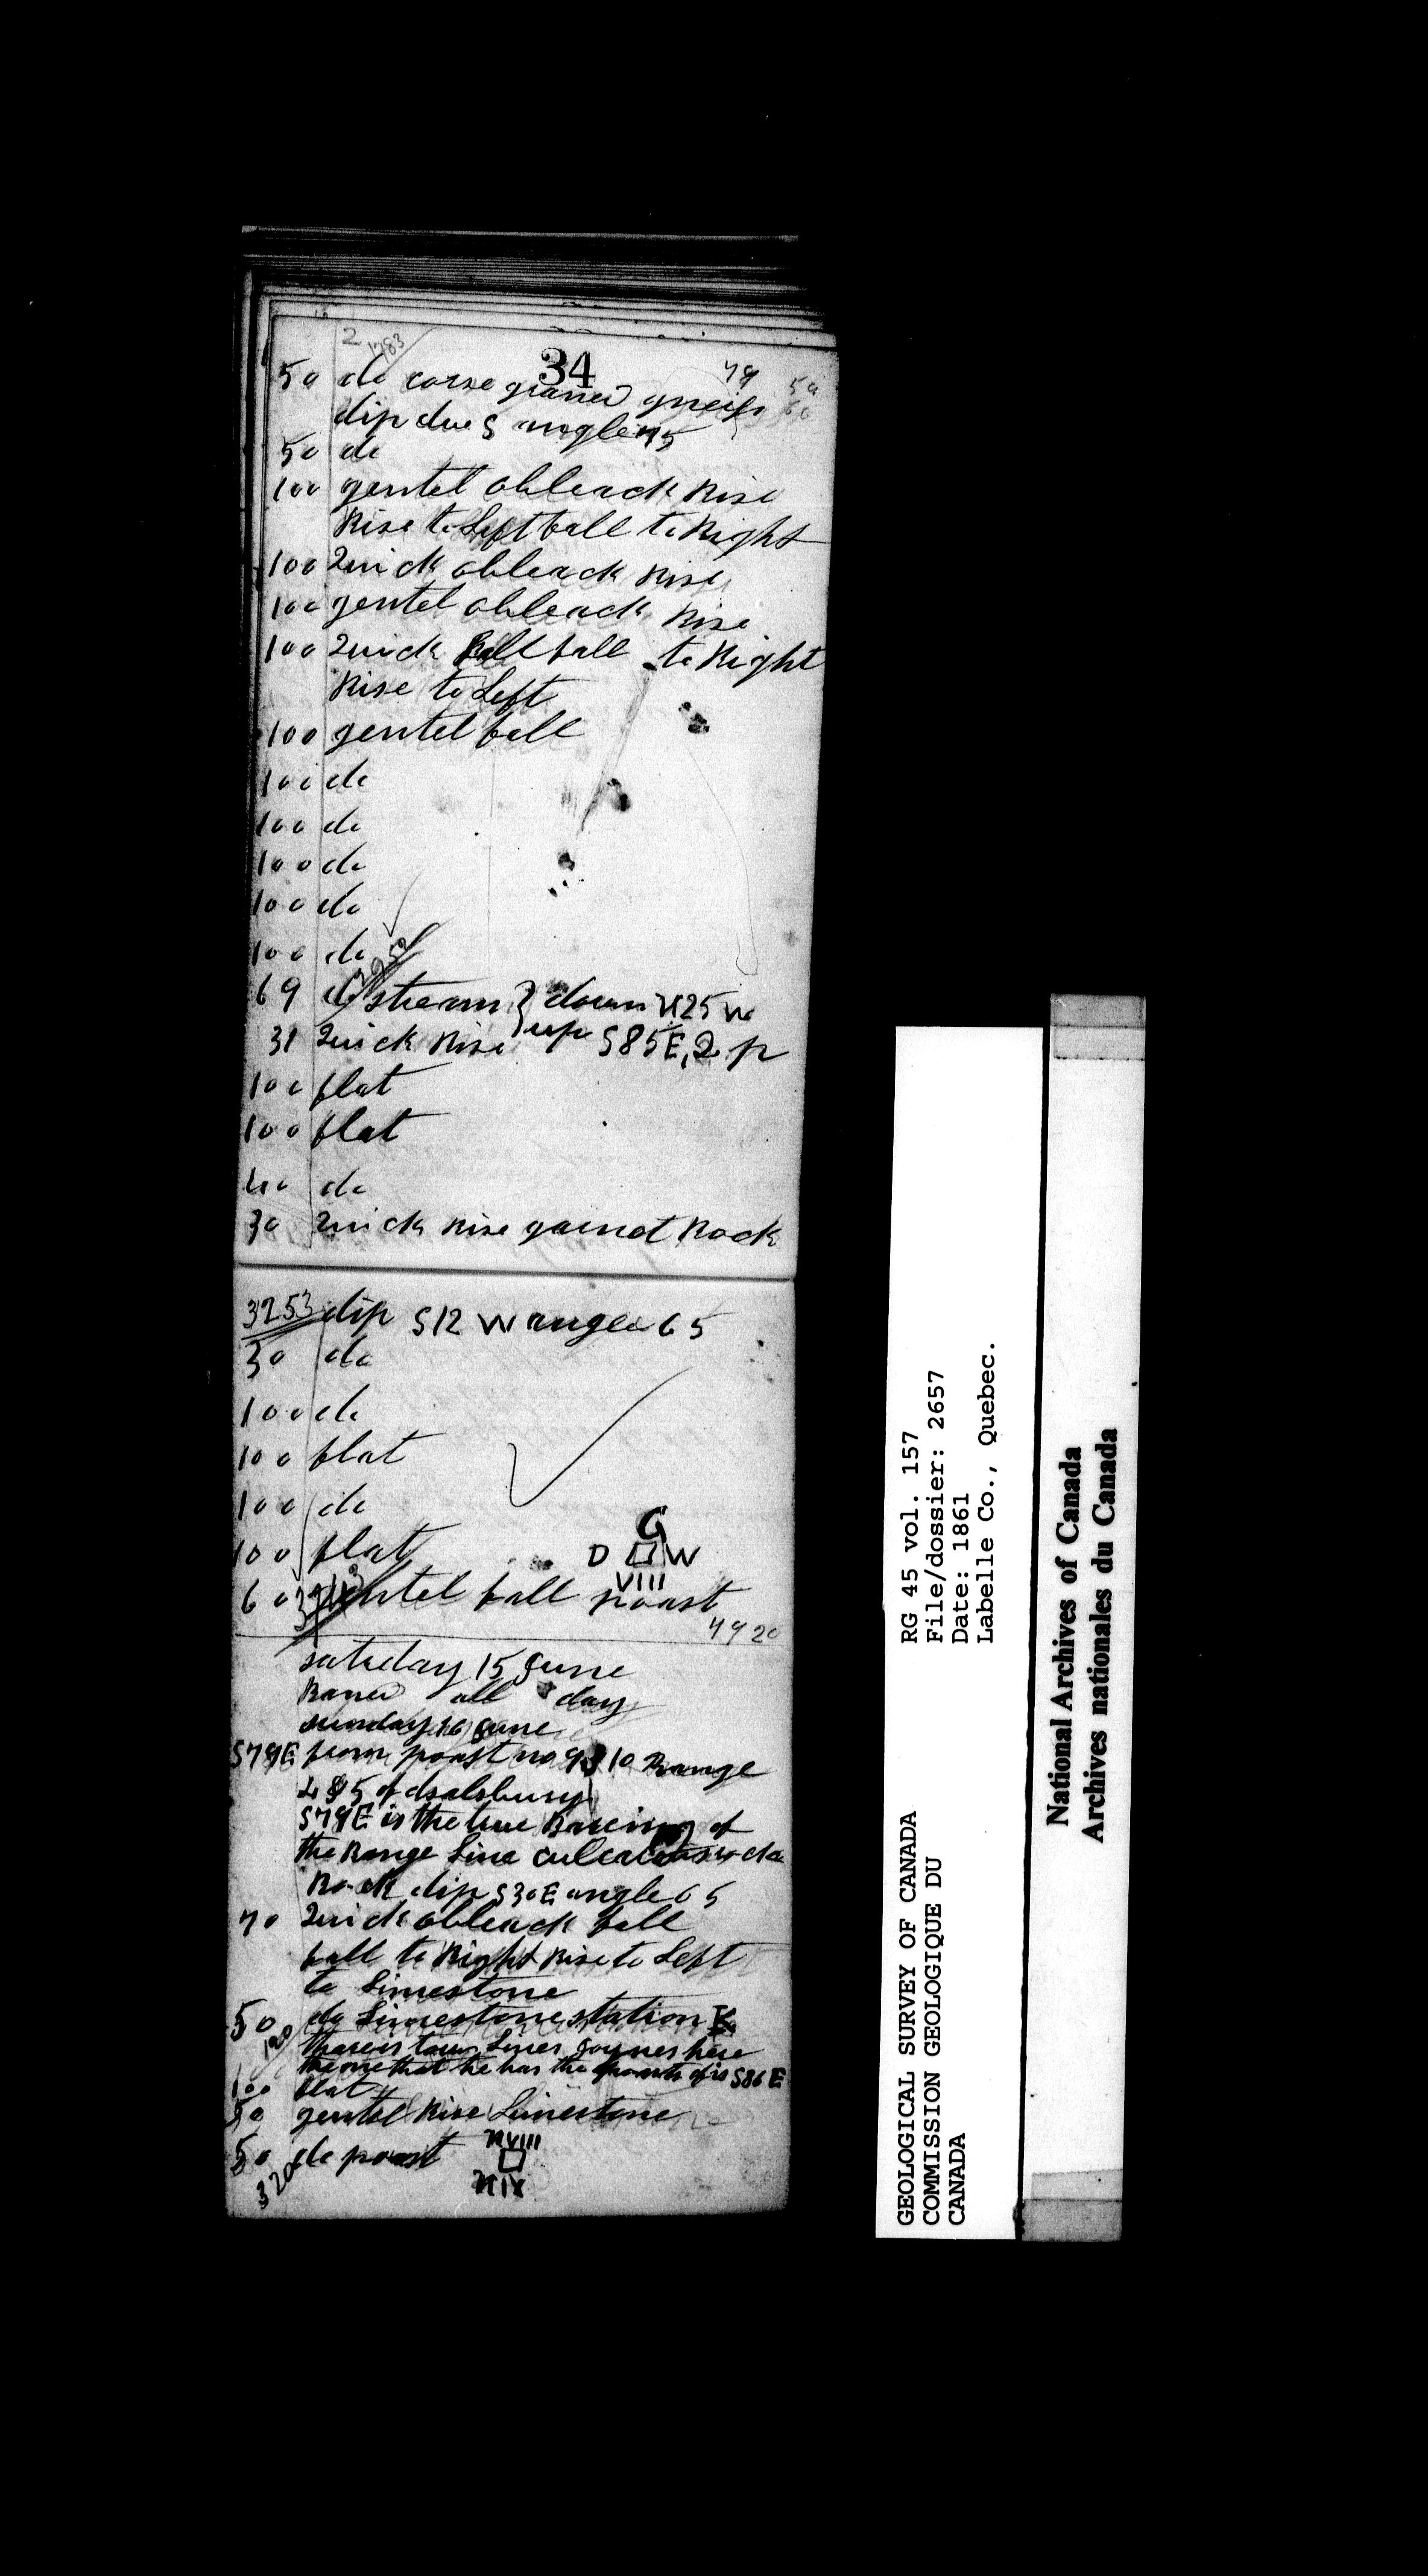 2 1783
34
79 50
60
50 do corse graned gneiss
dip due S angle 75
50 do
100 gentel obleack Rise
Rise to Left fall to Right
100 Quick obleack Rise
100 gentel obleack Rise
100 Quick fall fall to Right
Rise to Left
100 gentel fall
100 do
100 do
100 do
100 do
100 do
69 do stream } down N25W
31 Quick Rise } up S85E, 2 p
100 flat
100 flat
40 do
30 Quick Rise garnet Rock
3253 dip S12W angle 65
30 do
100 do
100 flat
100 do
G
100 flat D W
VIII
60 gentel fall poast
4920
saturday 15 June
Raned all day
sunday 16 June
S79E from poast no 9 & 10 Range
4 & 5 of dsalsbury
S79E is the true Bareing of
the Range Line
Rock dip S30E angle 65
70 Quick obleack fall
fall to Right Rise to Left
to Limestone
50 do Limestone station K
120
thare is tow Lines joynes here
the one that he has the poasts of is S86E
100 flat
50 gentel Rise Limestone
50 do poast N VIII
N IX
320
RG 45 vol. 157
File/dossier: 2657
Date: 1861
Labelle Co., Quebec.
GEOLOGICAL SURVEY OF CANADA
COMMISSION GEOLOGIQUE DU
CANADA
National Archives of Canada
Archives nationales du Canada